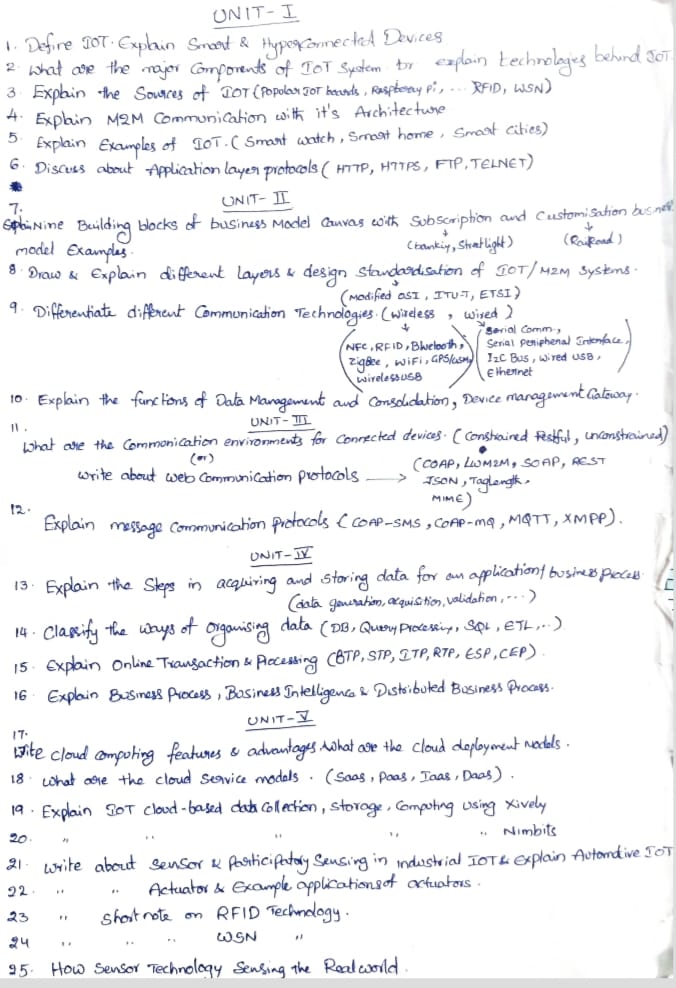 UNIT-I
1. Define IOT. Explain Smart & Hyperconnected Devices
2. What are the major Components of IOT System or explain technologies behind IOT.
3. Explain the Sources of IOT (Popular IOT boards, Raspberry Pi, ... RFID, WSN)
4. Explain M2M Communication with it's Architecture
5. Explain Examples of IOT. (Smart watch, Smart home, Smart Cities)
6. Discuss about Application layer protocols (HTTP, HTTPS, FTP, TELNET)
UNIT-II
7.
Nine Building blocks of business Model Canvas with Subscription and Customisation
model Examples. ↓ (bankiy, Streetlight) ↓ (RailRoad)
8. Draw & Explain different Layers & design Standardisation of IOT/M2M Systems.
↓ (Modified OSI, ITU-T, ETSI)
9. Differentiate different Communication Technologies. (Wireless, wired)
(NFC, RFID, Bluetooth, ZigBee, WiFi, GPS/GSM, wireless USB)
(Serial Comm., Serial Peripheral Interface, I2C Bus, wired USB, Ethernet)
10. Explain the functions of Data Management and Consolidation, Device management Gateway.
UNIT-III
11.
What are the Commonication environments for Connected devices. (Constrained Restful, unconstrained)
(or)
Write about Web Communication protocols → (COAP, LWM2M, SOAP, REST
JSON,
MIME)
12.
Explain message Communication protocols (COAP-SMS, COAP-MQ, MQTT, XMPP).
UNIT-IV
13. Explain the Steps in acquiring and Storing data for an application/business Process
(data generation, acquisition, validation, ...)
14. Classify the ways of Organising data (DB, Query Processing, SQL, ETL,..)
15. Explain Online Transaction & Processing (BTP, STP, ITP, RTP, ESP, CEP).
16. Explain Business Process, Business Intelligence & Distributed Business Process.
UNIT-V
17.
Write Cloud Computing features & advantages. What are the Cloud deployment Models.
18. What are the cloud Service models. (Saas, Paas, Iaas, Daas).
19. Explain IOT cloud-based data Collection, Storage, Computing using Xively
20. " " " " " Nimbits
21. Write about Sensor & Participatory Sensing in industrial IOT & Explain Automotive IOT
22. " " Actuator & Example applications of actuators.
23 " Short note on RFID Technology.
24 " " " WSN "
25. How Sensor Technology Sensing the Real world.